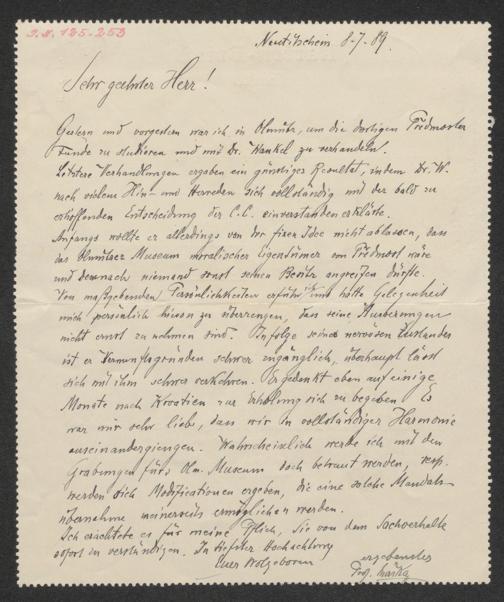 I.N. 125.253
Neutitschein 8-7-89.
Sehr geehrter Herr!
Gestern und vorgestern war ich in Olmütz, um die dortigen Předmoster
Funde zu studieren und mit Dr. Wankel zu verhandeln.
Letztere Verhandlungen ergaben ein günstiges Resultat, indem Dr. W.
nach vielem Hin- und Herreden sich vollständig mit der bald zu
erhoffenden Entscheidung der C.C. einverstanden erklärte.
Anfangs wollte er allerdings von der fixen Idee nicht ablassen, dass
das Olmützer Museum moralischer Eigentümer von Předmost wäre
und demnach niemand sonst seinen Besitz angreifen dürfte.
Von maßgebenden Persönlichkeiten erfuhr und hatte Gelegenheit
mich persönlich hievon zu überzeugen, dass seine Äußerungen
nicht ernst zu nehmen sind. Infolge seines nervösen Zustandes
ist er Vernunftsgründen schwer zugänglich, überhaupt lässt
sich mit ihm schwer verkehren. Er gedenkt eben auf einige
Monate nach Kroatien zur Erholung sich zu begeben. Es
war mir sehr lieb, dass wir in vollständiger Harmonie
auseinandergiengen. Wahrscheinlich werde ich mit den
Grabungen fürs Olm. Museum doch betraut werden, resp.
werden sich Modificationen ergeben, die eine solche Mandats-
übernahme meinerseits ermöglichen werden.
Ich erachtete es für meine Pflicht, Sie von dem Sachverhalte
sofort zu verständigen. In tiefster Hochachtung
Euer Wolgeboren
ergebenster
Prof. Maška